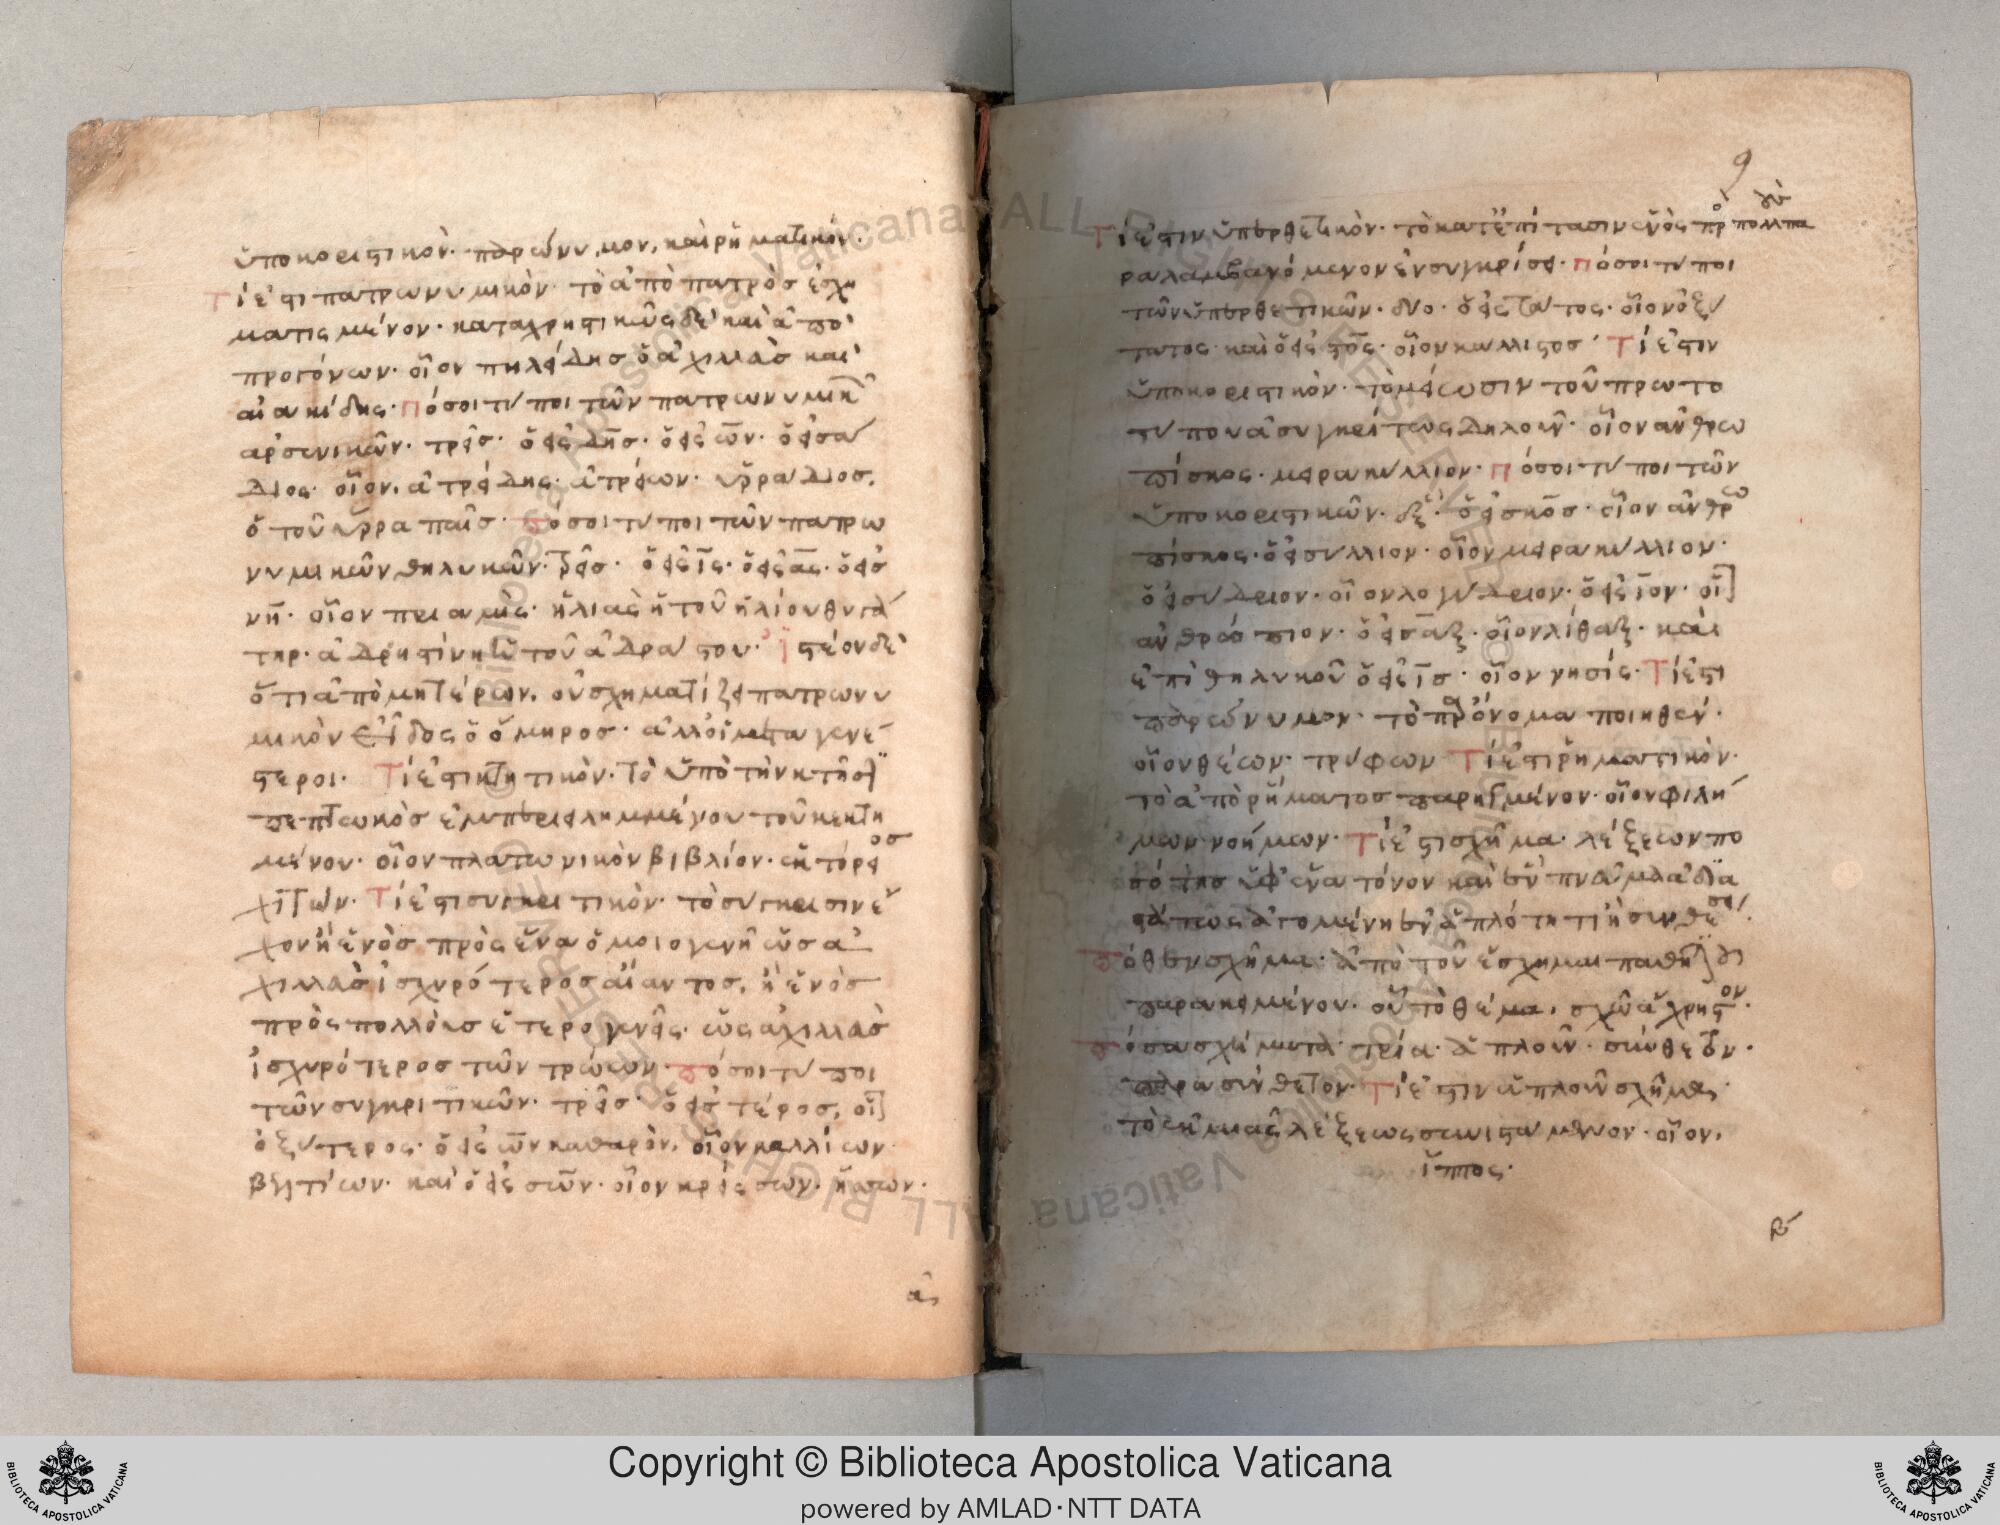 ὑποκοριστικὸν· παρώνυμον, καὶ ῥηματικόν·
Τί ἐστι πατρωνυμικὸν· τὸ ἀπὸ πατρὸς ἐσχη
ματισμένον· καταχρηστικῶς δὲ καὶ ἀπὸ
προγόνων· οἷον πηλείδης ὁ ἀχιλλεὺς καὶ
αἰακίδης· Πόσοι τύποι τῶν πατρωνυμικῶν
ἀρσενικῶν· τρεῖς· ὁ εἰς δης· ὁ εἰς ων· ὁ εἰς α
διος· οἷον, ἀτρείδης· ἀτρείων· ὑρράδιος,
ὁ τοῦ ὕρρα παῖς· Πόσοι τύποι τῶν πατρω
νυμικῶν θηλυκῶν· τρεῖς· ὁ εἰς ις· ὁ εἰς ας· ὁ εἰς
νη· οἷον πριαμὶς· ἡλιὰς ἡ τοῦ ἡλίου θυγά
τηρ· ἀδρηστίνη ἡ τοῦ ἀδράστου· Ἰστέον δὲ
ὅτι ἀπὸ μητέρων, οὐ σχηματίζει πατρωνυ
μικὸν εἶδος ὁ ὅμηρος· ἀλλ' οἱ μεταγενέ
στεροι· Τί ἐστι κτητικὸν· τὸ ὑπὸ τὴν κτῆσιν
πεπτωκὸς ἐμπεριειλημμένου τοῦ κεκτη
μένου· οἷον πλατωνικὸν βιβλίον· ἑκτόρειος
χιτών· Τί ἐστι συγκριτικὸν· τὸ σύγκρισιν ἔ
χον ἢ ἑνὸς πρὸς ἕνα ὁμοιογενῆ ὡς ἀ
χιλλεὺς ἰσχυρότερος αἴαντος, ἢ ἑνὸς
πρὸς πολλοὺς ἑτερογενεῖς· ὡς ἀχιλλεὺς
ἰσχυρότερος τῶν τρώων· Πόσοι τύποι
τῶν συγκριτικῶν· τρεῖς· ὁ εἰς τερος, οἷον
ὀξύτερος· ὁ εἰς ων καθαρὸν, οἷον καλλίων
βελτίων· καὶ ὁ εἰς σων· οἷον κρείσσων· ἥσσων·
ας
9
Τί ἐστιν ὑπερθετικὸν· τὸ κατ' ἐπίτασιν ἑνὸς πρὸς πολλοὺς πα
ραλαμβανόμενον ἐν συγκρίσει· Πόσοι τύποι
τῶν ὑπερθετικῶν· δύο· ὁ εἰς τατος· οἷον ὀξύ
τατος· καὶ ὁ εἰς στος· οἷον κάλλιστος· Τί ἐστιν
ὑποκοριστικὸν· τὸ μείωσιν τοῦ πρωτο
τύπου ἀσυγκρίτως δηλοῦν· οἷον ἀνθρω
πίσκος· μειρακύλλιον· Πόσοι τύποι τῶν
ὑποκοριστικῶν· ὁ εἰς σκος· οἷον ἀνθρω
πίσκος· ὁ εἰς υλλιον· οἷον μειρακύλλιον·
ὁ εἰς υδριον· οἷον λογύδριον· ὁ εἰς ιον· οἷον
ἀνθρώπιον· ὁ εἰς αξ· οἷον λίθαξ· καὶ
ἐπὶ θηλυκοῦ ὁ εἰς ις· οἷον νησίς· Τί ἐστι
παρώνυμον· τὸ παρ' ὄνομα ποιηθέν·
οἷον θέων· τρύφων Τί ἐστι ῥηματικὸν·
τὸ ἀπὸ ῥήματος παρηγμένον· οἷον φιλή
μων νοήμων· Τί ἐστι σχῆμα· λέξεων πο
σότης ὑφ' ἕνα τόνον καὶ ἓν πνεῦμα ἀδια
στάτως ἀγομένη ἐν ἁπλότητι ἢ συνθέσει·
Πόθεν σχῆμα· ἀπὸ τοῦ ἔσχημαι παθητικοῦ
παρακειμένου· οὗ τὸ θέμα, σχῶ ἄχρηστον·
Πόσα σχήματα· τρία· ἁπλοῦν· σύνθετον·
παρασύνθετον· Τί ἐστιν ἁπλοῦν σχῆμα·
τὸ ἐκ μιᾶς λέξεως συνιστάμενον· οἷον,
ἵππος·
β
Copyright © Biblioteca Apostolica Vaticana
powered by AMLAD·NTT DATA